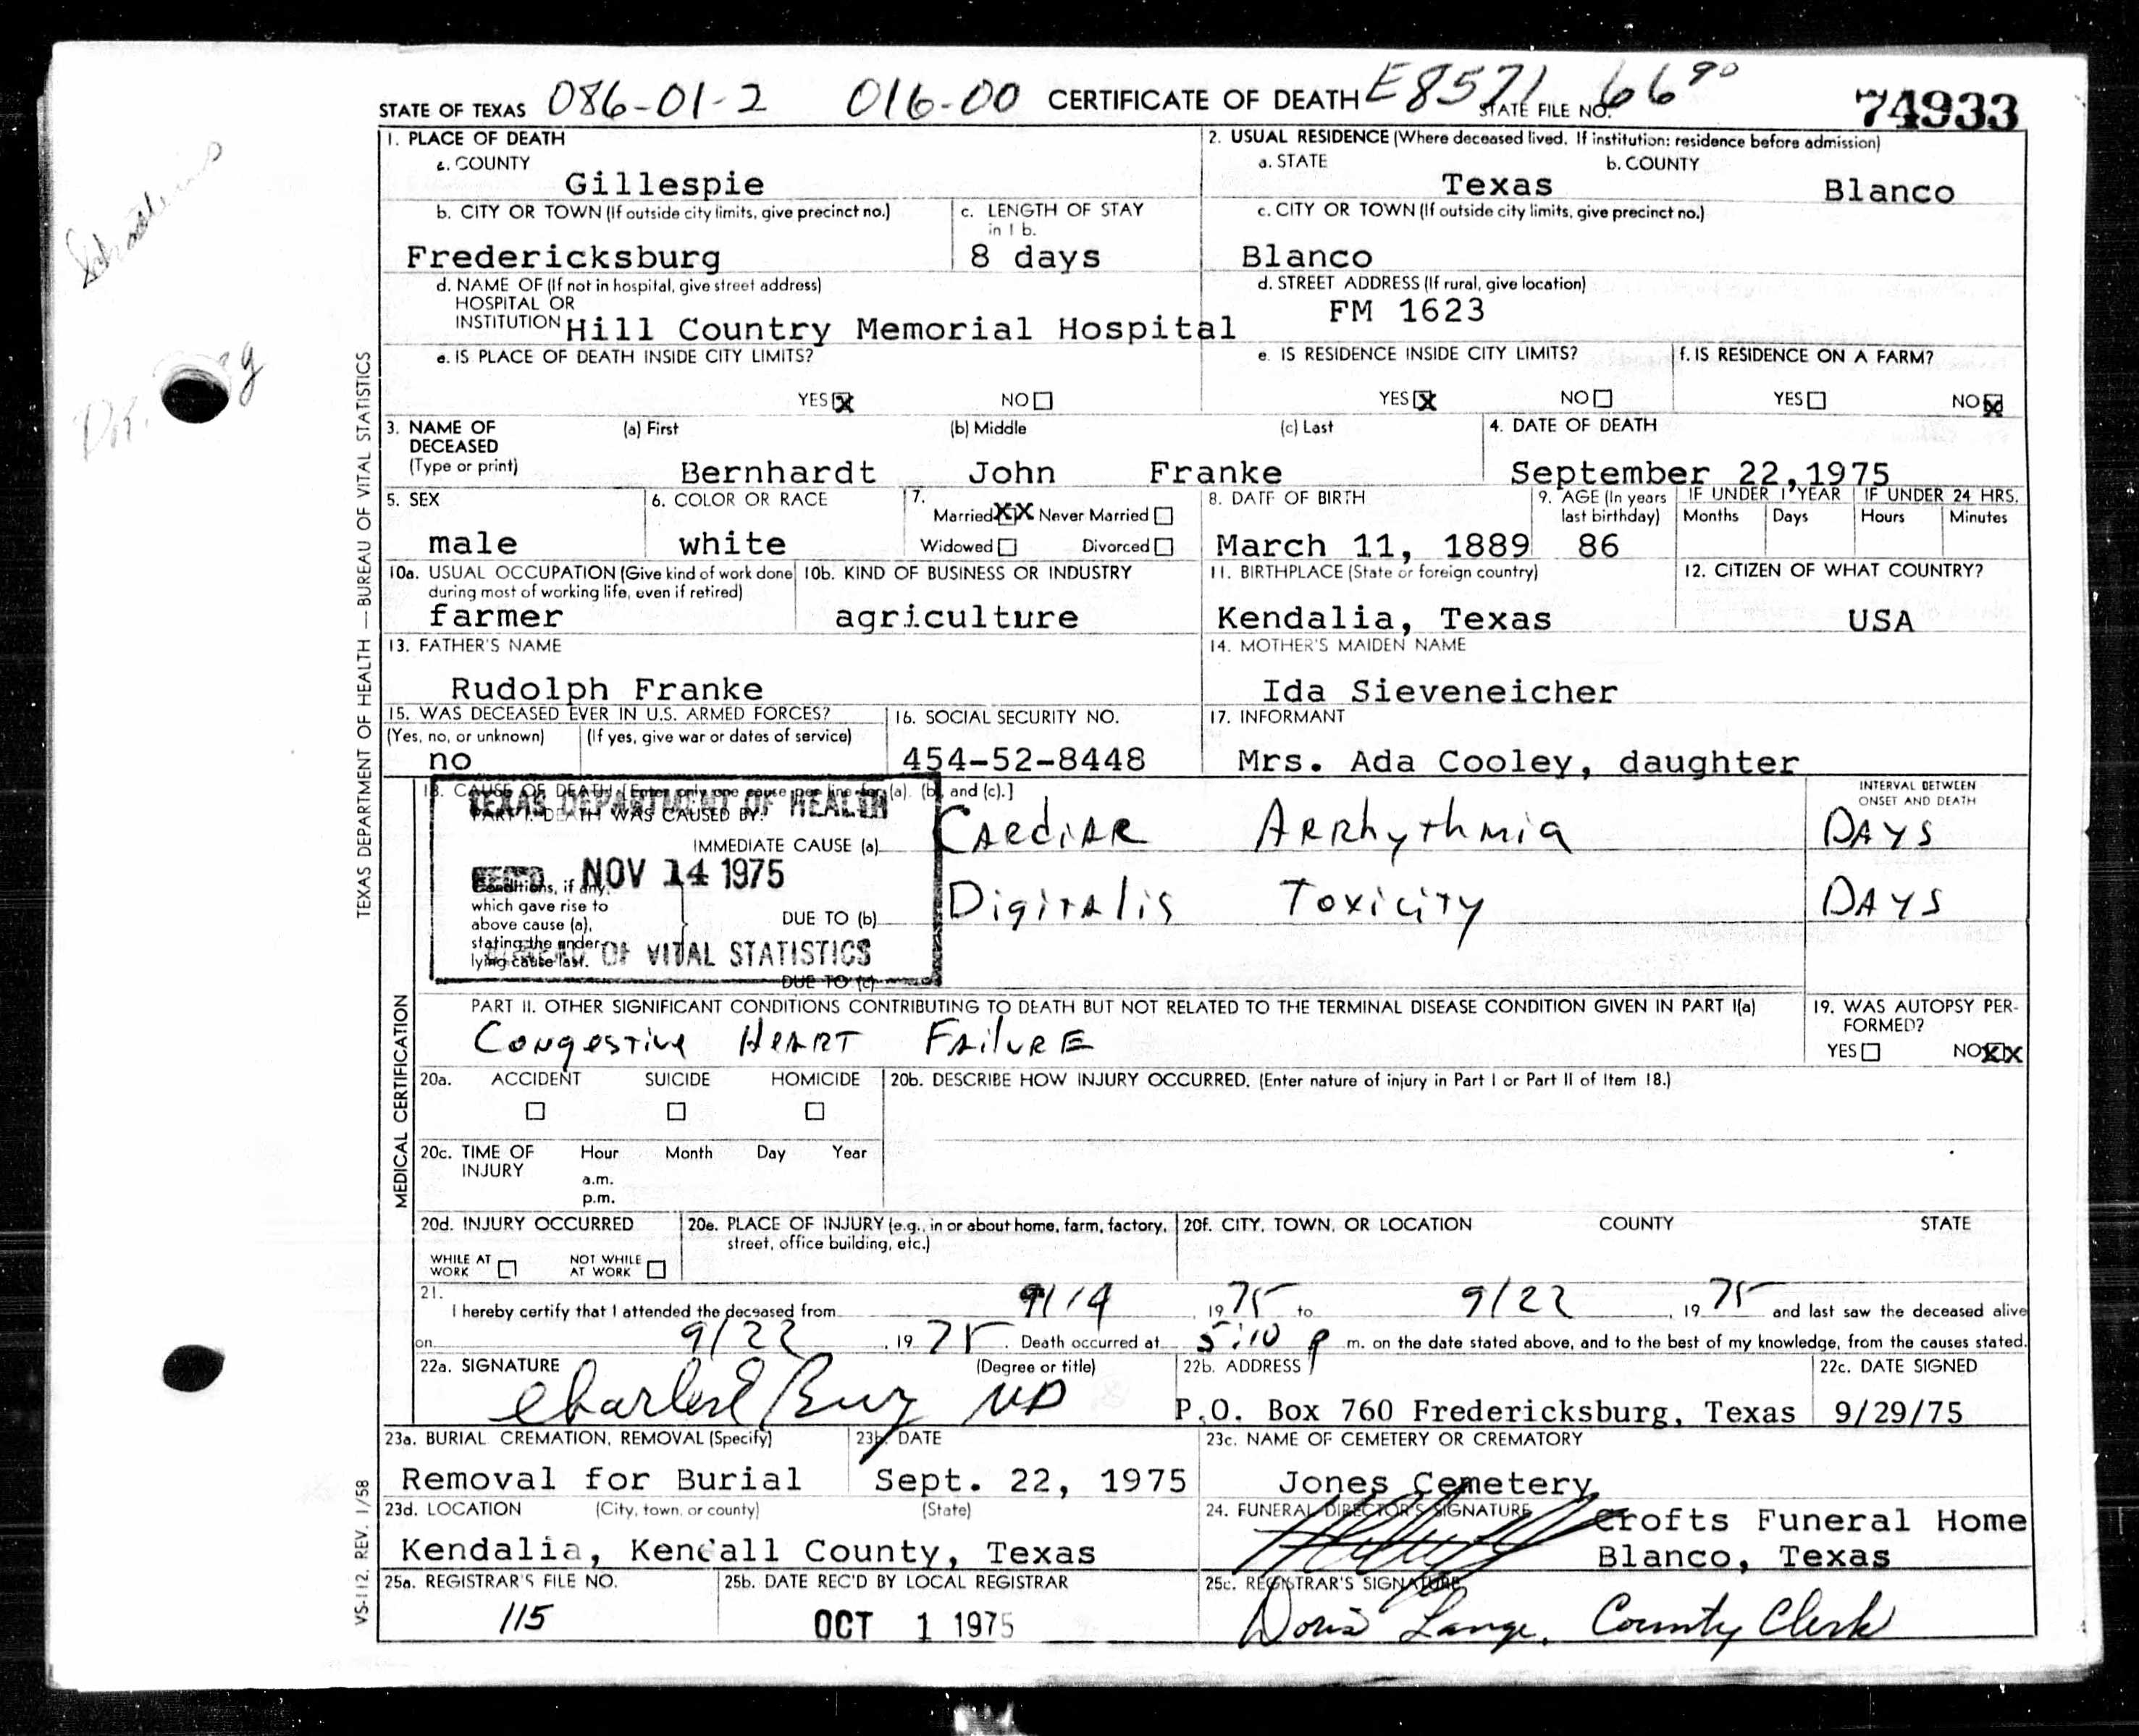 STATE OF TEXAS 086-01-2 016-00 CERTIFICATE OF DEATH E8571 STATE FILE NO. 66 90 74933
1. PLACE OF DEATH
a. COUNTY
Gillespie
2. USUAL RESIDENCE (Where deceased lived. If institution: residence before admission)
a. STATE b. COUNTY
Texas Blanco
b. CITY OR TOWN (If outside city limits, give precinct no.)
Fredericksburg
c. LENGTH OF STAY
in 1 b.
8 days
c. CITY OR TOWN (If outside city limits, give precinct no.)
Blanco
d. NAME OF (If not in hospital, give street address)
HOSPITAL OR
INSTITUTION Hill Country Memorial Hospital
d. STREET ADDRESS (If rural, give location)
FM 1623
e. IS PLACE OF DEATH INSIDE CITY LIMITS?
YES X NO
e. IS RESIDENCE INSIDE CITY LIMITS?
YES X NO
f. IS RESIDENCE ON A FARM?
YES NO X
3. NAME OF
DECEASED
(Type or print)
(a) First (b) Middle (c) Last
Bernhardt John Franke
4. DATE OF DEATH
September 22,1975
5. SEX
male
6. COLOR OR RACE
white
7.
Married XX Never Married
Widowed Divorced
8. DATE OF BIRTH
March 11, 1889
9. AGE (In years
last birthday)
86
IF UNDER 1 YEAR
Months Days
IF UNDER 24 HRS.
Hours Minutes
10a. USUAL OCCUPATION (Give kind of work done
during most of working life, even if retired)
farmer
10b. KIND OF BUSINESS OR INDUSTRY
agriculture
11. BIRTHPLACE (State or foreign country)
Kendalia, Texas
12. CITIZEN OF WHAT COUNTRY?
USA
13. FATHER'S NAME
Rudolph Franke
14. MOTHER'S MAIDEN NAME
Ida Sieveneicher
15. WAS DECEASED EVER IN U.S. ARMED FORCES?
(Yes, no, or unknown) (If yes, give war or dates of service)
no
16. SOCIAL SECURITY NO.
454-52-8448
17. INFORMANT
Mrs. Ada Cooley, daughter
18. CAUSE OF DEATH [Enter only one cause per line for (a). (b) and (c).]
PART I. DEATH WAS CAUSED BY:
IMMEDIATE CAUSE (a) Cardiac Arrhythmia
INTERVAL BETWEEN
ONSET AND DEATH
DAYS
Conditions, if any,
which gave rise to
above cause (a),
stating the under-
lying cause last.
DUE TO (b) Digitalis Toxicity DAYS
DUE TO (c)
TEXAS DEPARTMENT OF HEALTH
REC'D NOV 14 1975
BUREAU OF VITAL STATISTICS
PART II. OTHER SIGNIFICANT CONDITIONS CONTRIBUTING TO DEATH BUT NOT RELATED TO THE TERMINAL DISEASE CONDITION GIVEN IN PART I(a)
Congestive Heart Failure
19. WAS AUTOPSY PER-
FORMED?
YES NO XX
20a. ACCIDENT SUICIDE HOMICIDE
20b. DESCRIBE HOW INJURY OCCURRED. (Enter nature of injury in Part I or Part II of Item 18.)
20c. TIME OF
INJURY
Hour Month Day Year
a.m.
p.m.
20d. INJURY OCCURRED
WHILE AT
WORK
NOT WHILE
AT WORK
20e. PLACE OF INJURY (e.g., in or about home, farm, factory,
street, office building, etc.)
20f. CITY, TOWN, OR LOCATION COUNTY STATE
21.
I hereby certify that I attended the deceased from 9/14, 19 75 to 9/22, 19 75 and last saw the deceased alive
on 9/22, 19 75. Death occurred at 5:10 p m. on the date stated above, and to the best of my knowledge, from the causes stated.
22a. SIGNATURE (Degree or title)
MD
22b. ADDRESS
P.O. Box 760 Fredericksburg, Texas
22c. DATE SIGNED
9/29/75
23a. BURIAL CREMATION, REMOVAL (Specify)
Removal for Burial
23b. DATE
Sept. 22, 1975
23c. NAME OF CEMETERY OR CREMATORY
Jones Cemetery
23d. LOCATION (City, town, or county) (State)
Kendalia, Kendall County, Texas
24. FUNERAL DIRECTOR'S SIGNATURE
Crofts Funeral Home
Blanco, Texas
25a. REGISTRAR'S FILE NO.
115
25b. DATE REC'D BY LOCAL REGISTRAR
OCT 1 1975
25c. REGISTRAR'S SIGNATURE
Doris Lange, County Clerk
TEXAS DEPARTMENT OF HEALTH — BUREAU OF VITAL STATISTICS
MEDICAL CERTIFICATION
VS-112. REV. 1/58
Dr.